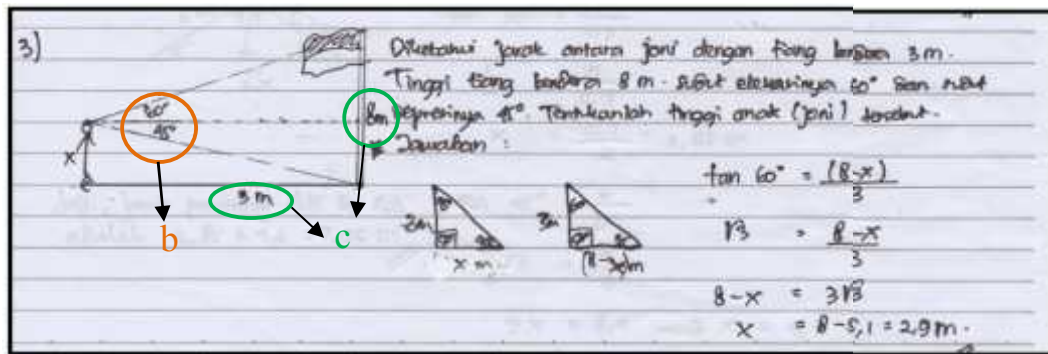 3)
Diketahui jarak antara joni dengan tiang bendera 3 m.
Tinggi tiang bendera 8 m. sudut elevasinya 60° dan sudut
depresinya 45°. Tentukanlah tinggi anak (joni) tersebut.
Jawaban :
60°
45°
8m
x
3 m
b
c
3m
x m.
3m
60°
(8-x)m
tan 60° = (8-x)/3
√3 = 8-x/3
8-x = 3√3
x = 8-5,1 = 2,9 m.